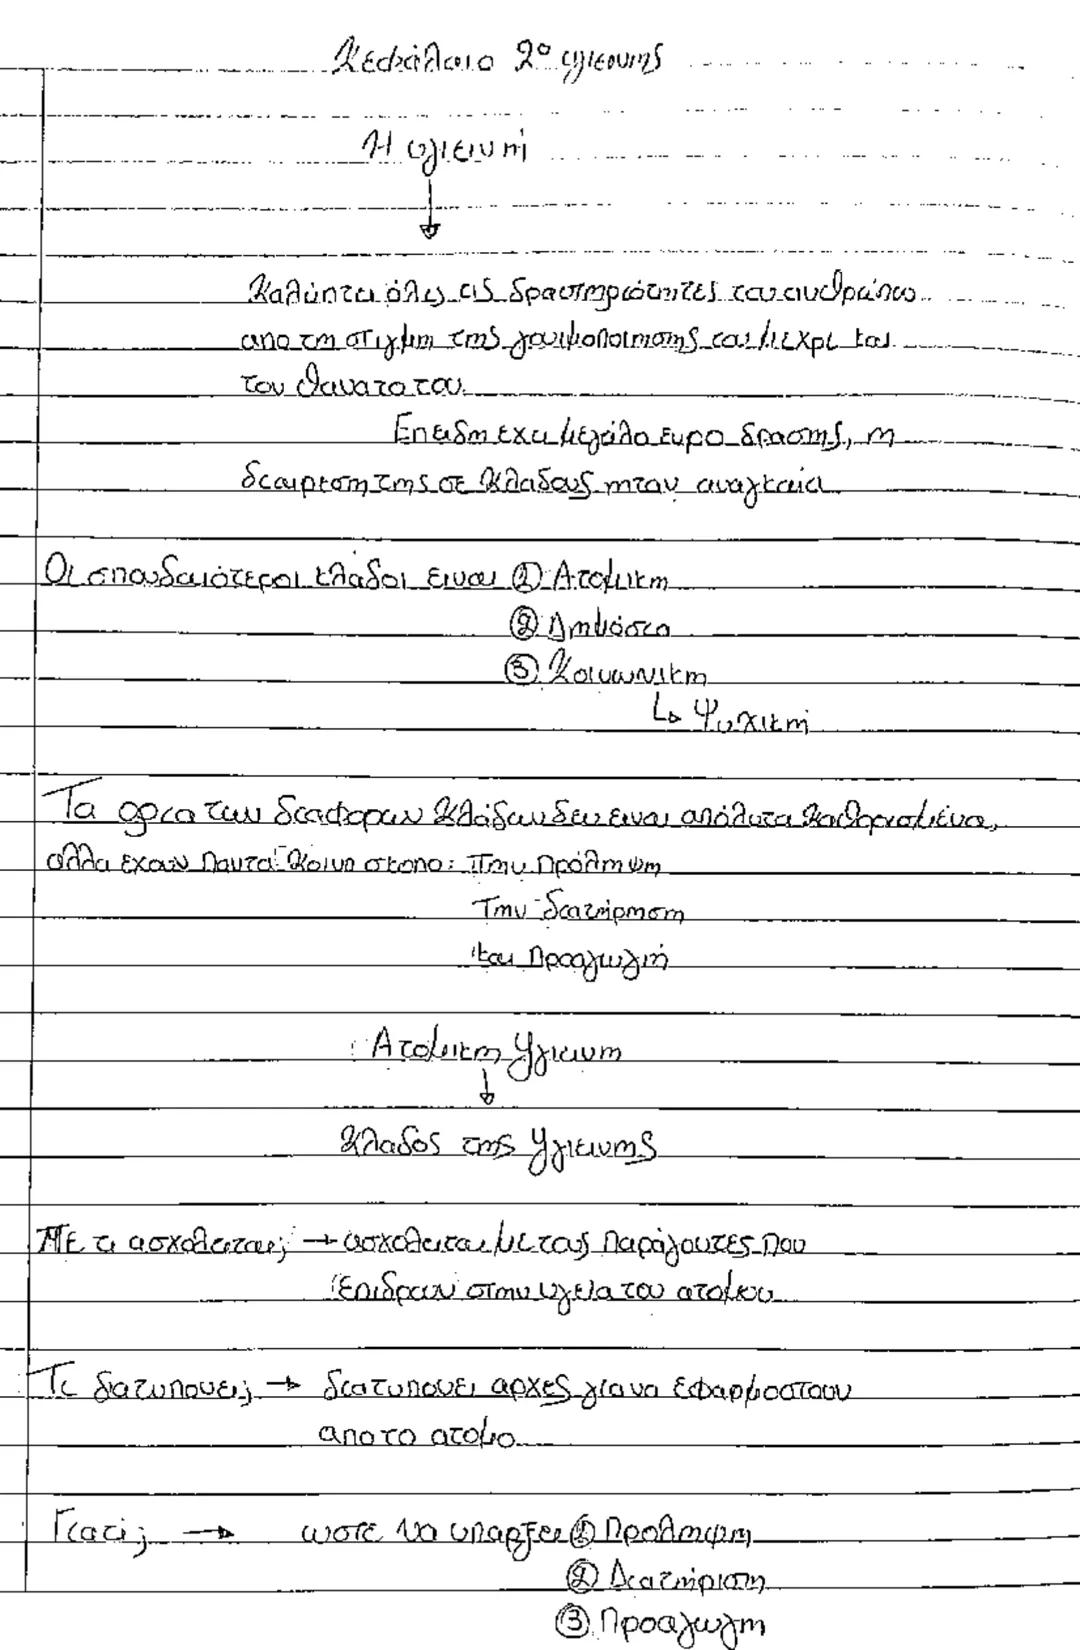 Κεφάλαιο 2° υγιεινής
Η υγιεινή
↓
Καλύπτει όλες τις δραστηριότητες του ανθρώπου
απο τη στιγμη της γονιμοποιησης του μεχρι και
τον θανατο του.
Επειδη εχει μεγάλο ευρο δρασης, η
διαιρεση της σε κλαδους ηταν αναγκαία
Οι σπουδαιότεροι κλαδοι ειναι ① Ατομικη
② Δημόσια
③ Κοινωνικη
↳ Ψυχική
Τα ορια των διαφορων κλάδων δεν ειναι απόλυτα καθορισμένα,
αλλα εχουν παντα κοινο σκοπο: Την πρόληψη
Την διατήρηση
και προαγωγή
Ατομικη Υγιεινη
↓
Κλαδος της Υγιεινης
Με τι ασχολειται; → ασχολειται με τους παράγοντες που
επιδρουν στην υγεία του ατομου
Τι διατυπονει; → διατυπονει αρχες για να εφαρμοστουν
απο το ατομο
Γιατί; → ωστε να υπαρξει ① Προληψη
② Διατήριση
③ Προαγωγη